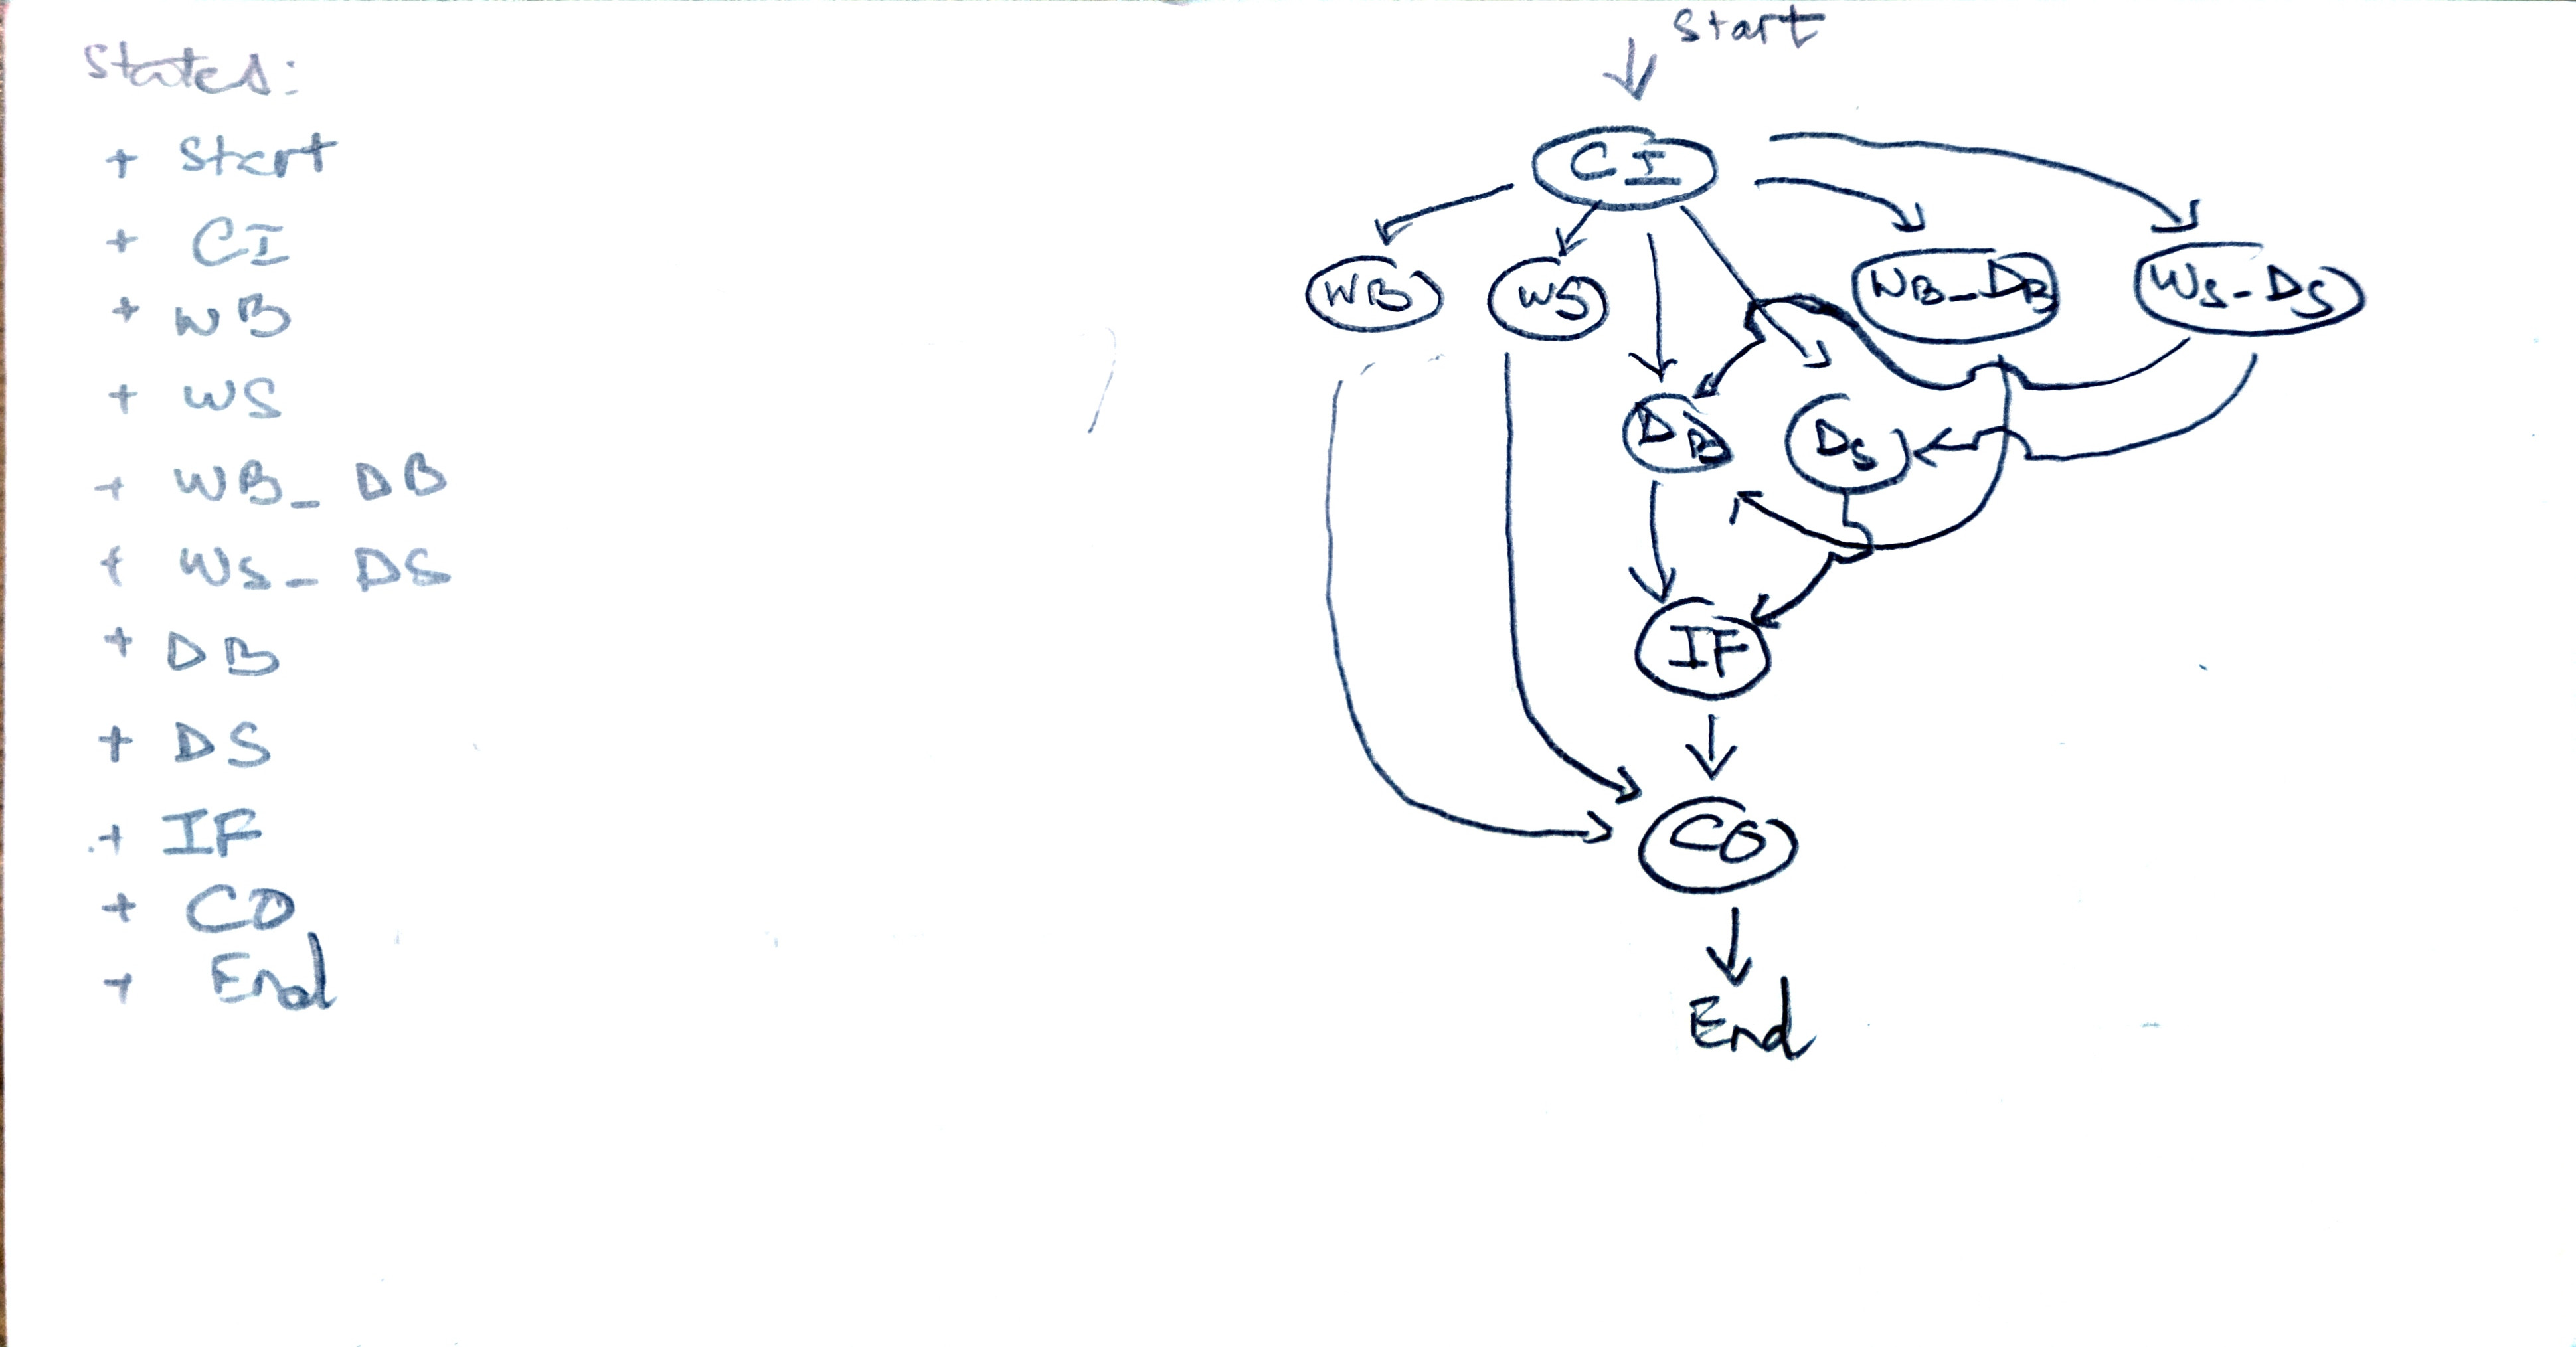 States:
+ Start
+ CI
+ WB
+ WS
+ WB_DB
+ WS_DS
+ DB
+ DS
+ IF
+ CO
+ End
Start
CI
WB
WS
WB_DB
WS_DS
DB
DS
IF
CO
End